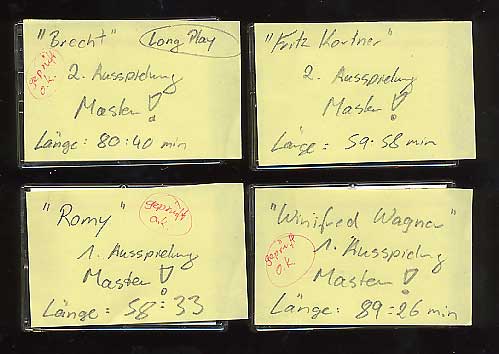 "Brecht" Long Play
geprüft
O.K.
2. Ausspielung
Master!
Länge: 80:40 min
"Fritz Kortner"
2. Ausspielung
Master!
Länge: 59:58 min
"Romy"
geprüft
O.K.
1. Ausspielung
Master!
Länge: 58:33
"Winifred Wagner"
geprüft
O.K.
1. Ausspielung
Master!
Länge: 89:26 min